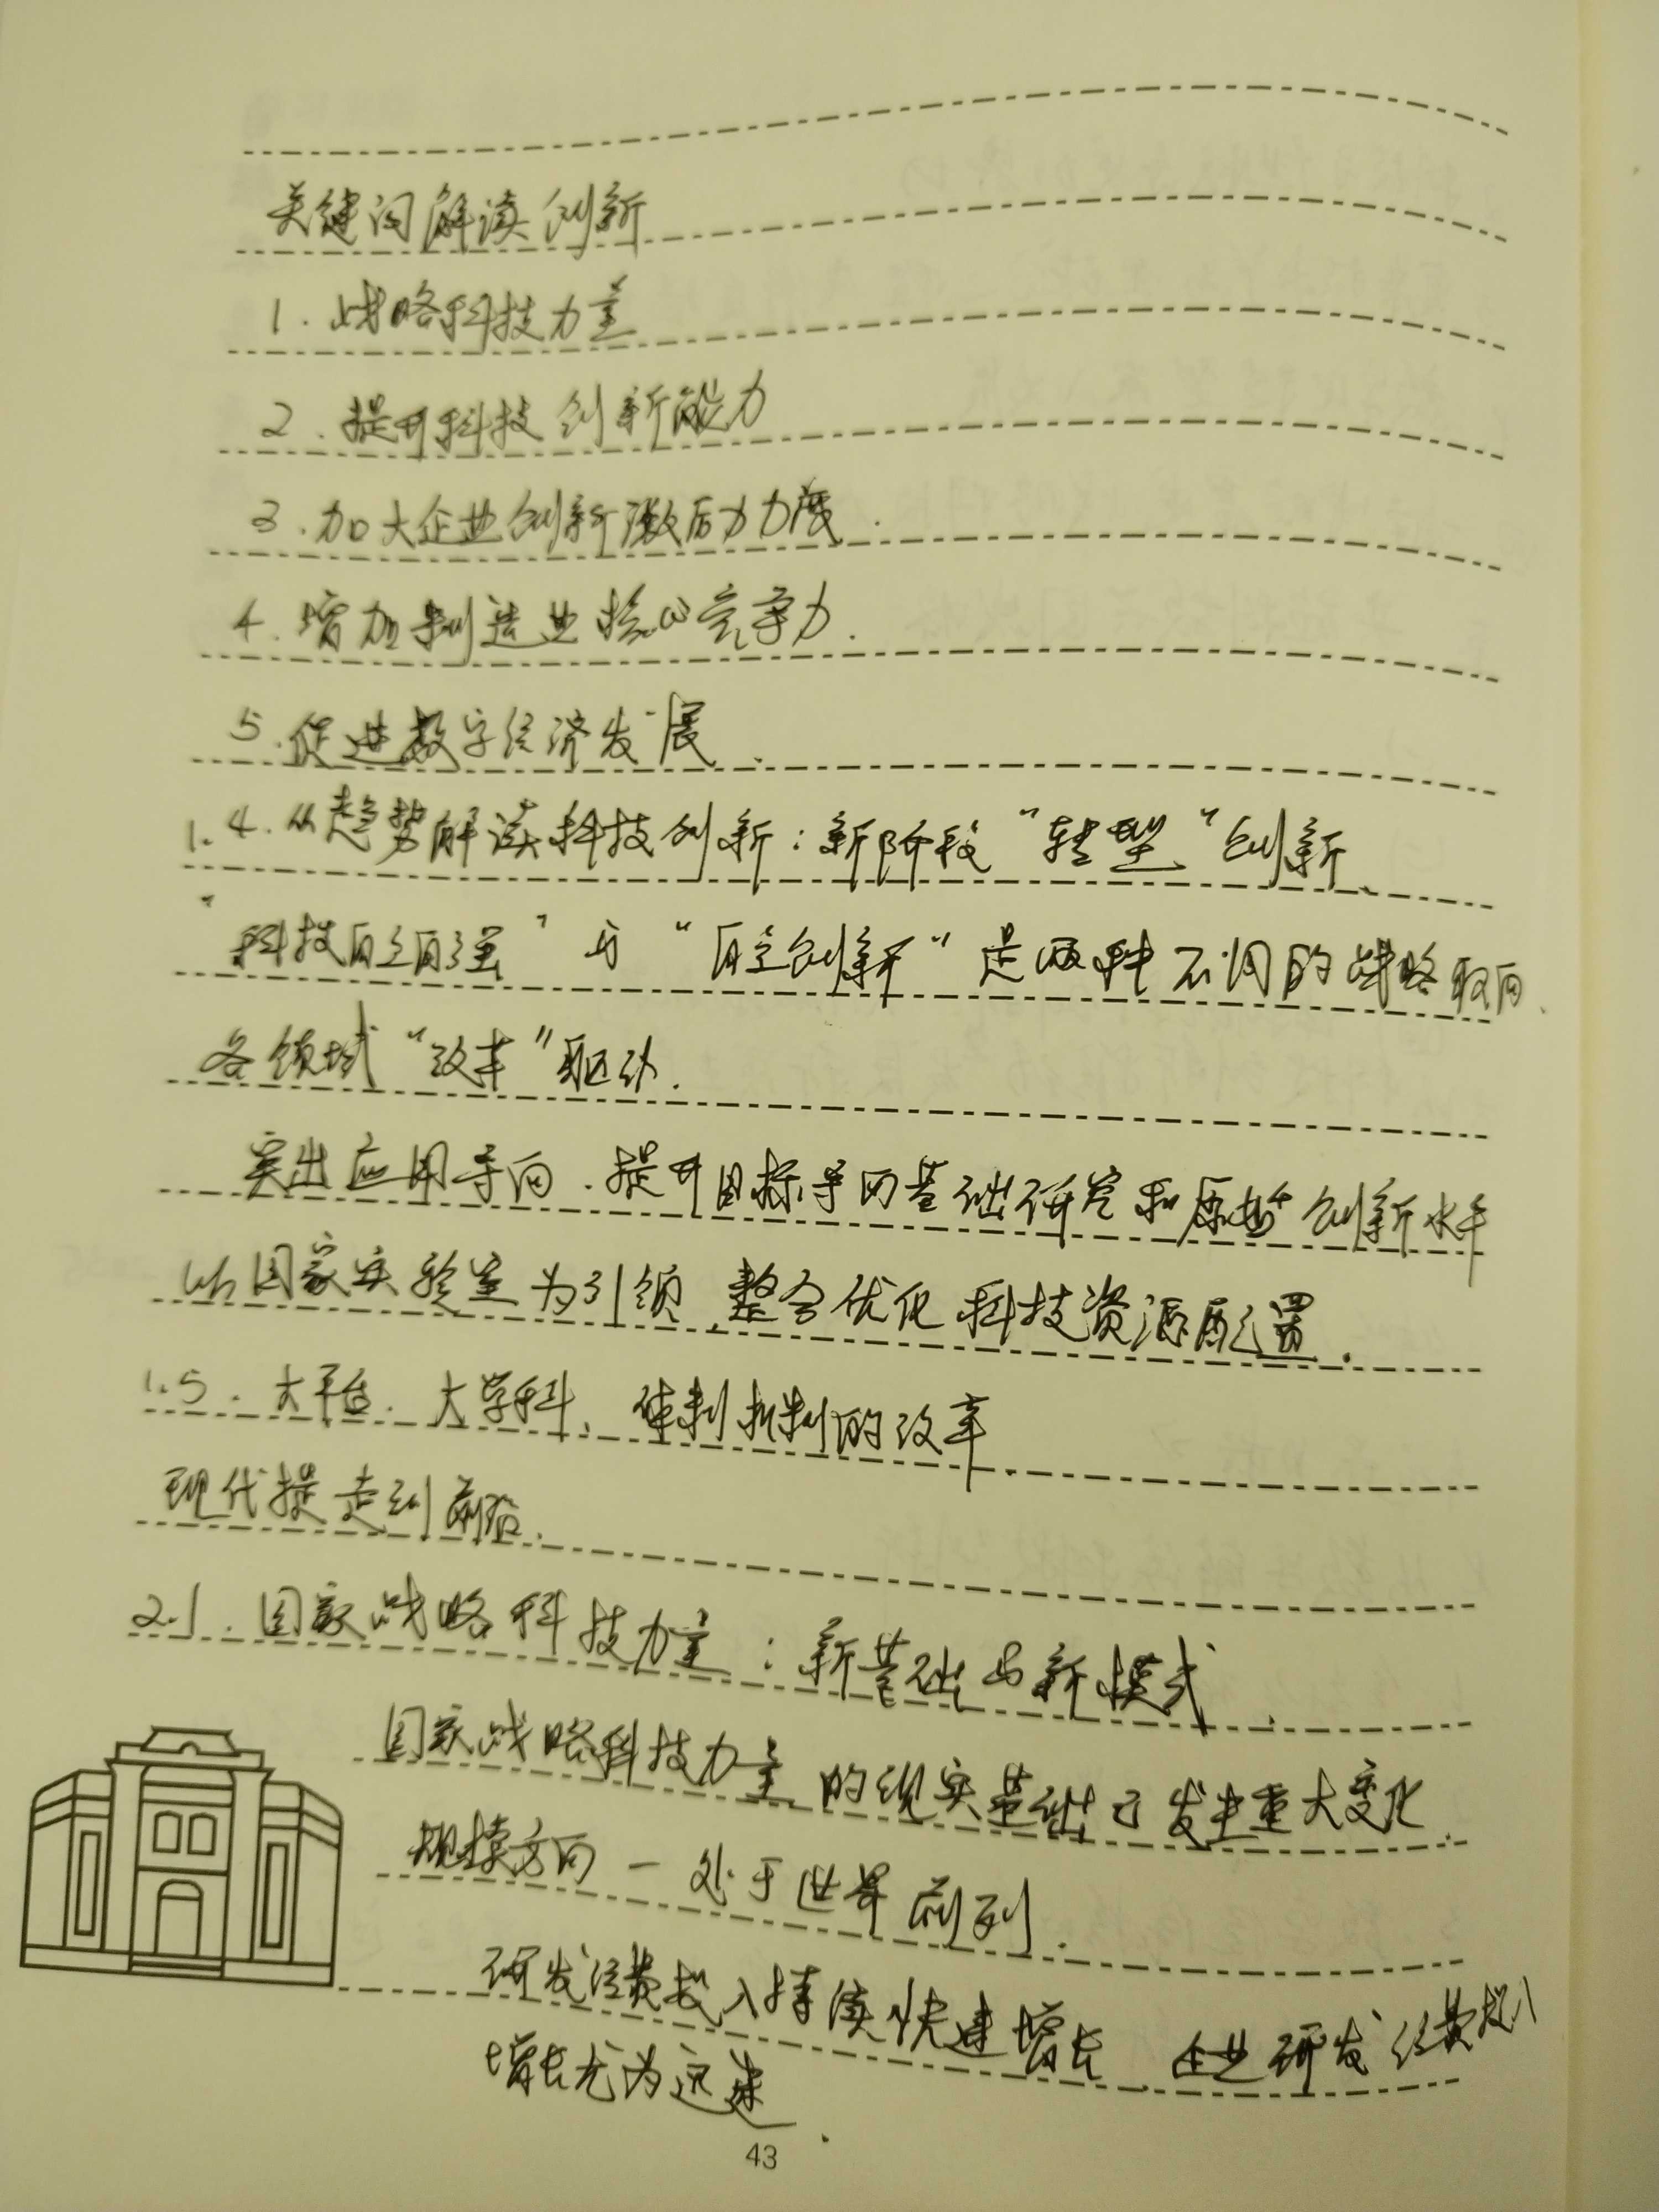 关键词解读创新
1. 战略科技力量
2. 提升科技创新能力
3. 加大企业创新激励力度.
4. 增加制造业核心竞争力.
5. 促进数字经济发展.
1.4. 从趋势解读科技创新：新阶段“转型”创新.
“科技自立自强”与“自主创新”是两种不同的战略取向.
各领域“改革”驱动.
突出应用导向. 提升目标导向基础研究和原始创新水平
以国家实验室为引领, 整合优化科技资源配置.
1.5. 大平台. 大学科、体制机制的改革.
现代提走到前沿.
2.1. 国家战略科技力量：新基础与新模式.
国家战略科技力量的现实基础已发生重大变化.
规模方面 — 处于世界前列.
研发经费投入持续快速增长. 企业研发经费投入
增长尤为迅速.
43